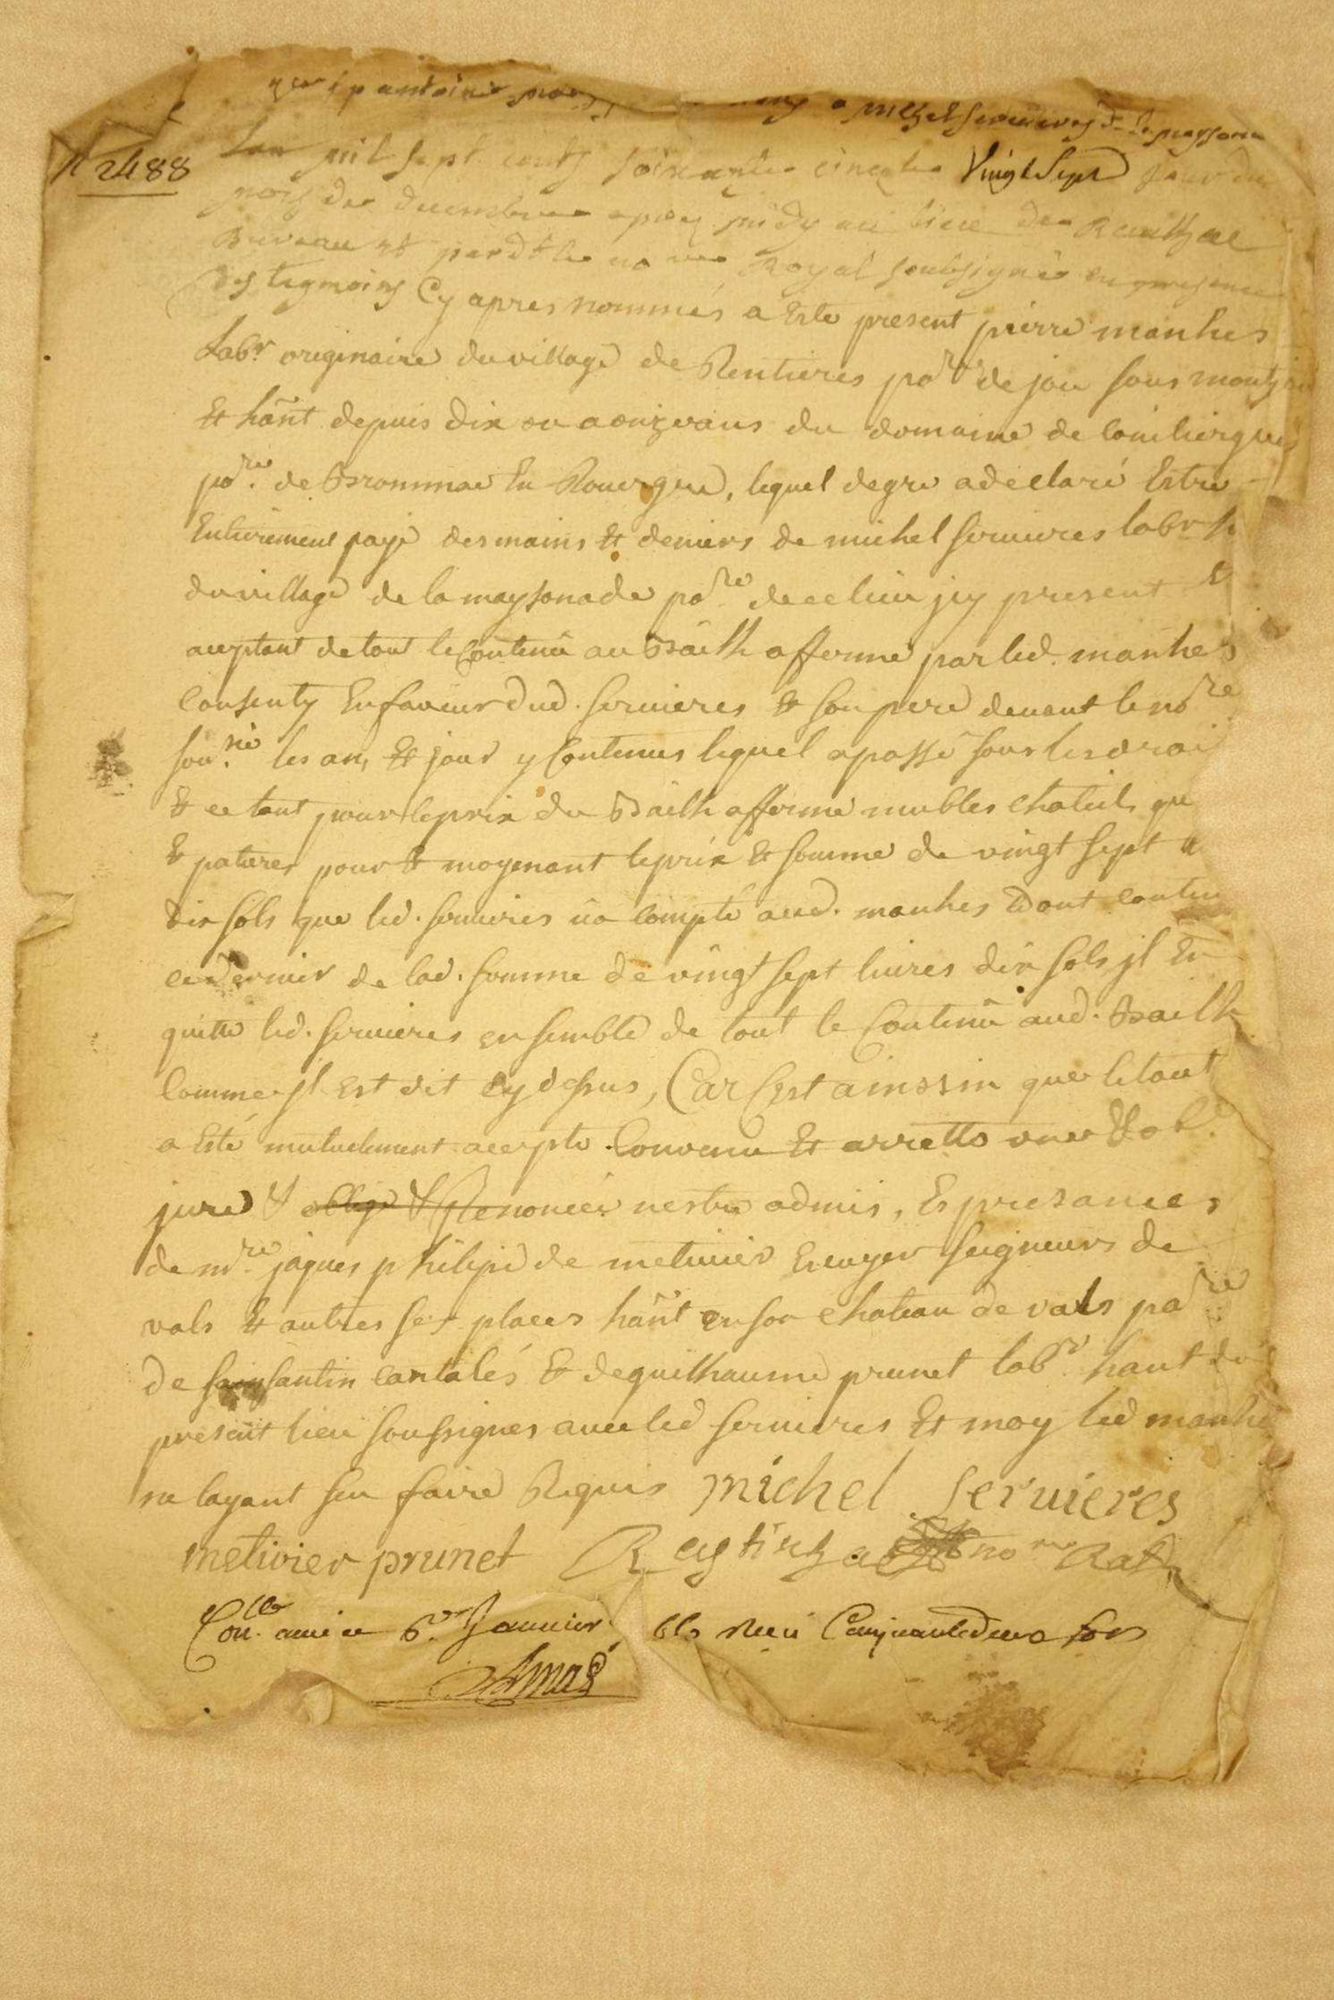 a michel servieres de la maysonade
n 2488
Lan mil sept cents soixante cincq le vingt sept jour du
mois de decembre apres midy au lieu de
Bureau et pard^t le no^re Royal soubsigné en presence
des tegmoins Cy apres nommés a Esté present pierre manhes
Lab^r originaire du village de Rentieres pa^re de jou sous montjou
Et hañt depuis dix ou aonze ans du domaine de
po^re de Brommac En Rouergue, lequel de gre a declaré Estre
Entierement payé des mains & deniers de michel servieres lab^r h
du village de la maysonade po^re de ce lieu jcy present &
aceptant de tout le Contenu au Bailh afferme par led. manhes
Consenty En faveur dud. servieres & son pere devant le no^re
sou^.né les an, Et jour y Contenus lequel a passé sous les drai
& ce tout pour le prix du Bailh afferme mubles chateils qu
& patures pour & moyenant le prix & somme de vingt sept
dix sols que led. servieres ua compté aud. manhes Dont
ce dernier de lad. somme de vingt sept livres dix sols jl En
quitte led. servieres ensemble de tout le Contenu aud. Bailh
Comme jl est dit Cy dessus, Car Cest ainssin que le tout
a Esté mutuelement acepte Convenu Et arretté
juré & oblige & Renoncér nestre admis, Es presances
de m^re jaques philipe de metivier Ecuyer seigneurs de
vals Et autres ses places hañt en son chateau de vals pa^re
de saint santin cantalés & de guilhaume prunet lab^r hant du
present lieu soussignes avec led servieres Et moy led manhes
ne layant sceu faire Requis michel servieres
metivier prunet no^re Royal
Con^lle a le 6^e Janvier 66 Receu Cinquante deux sols